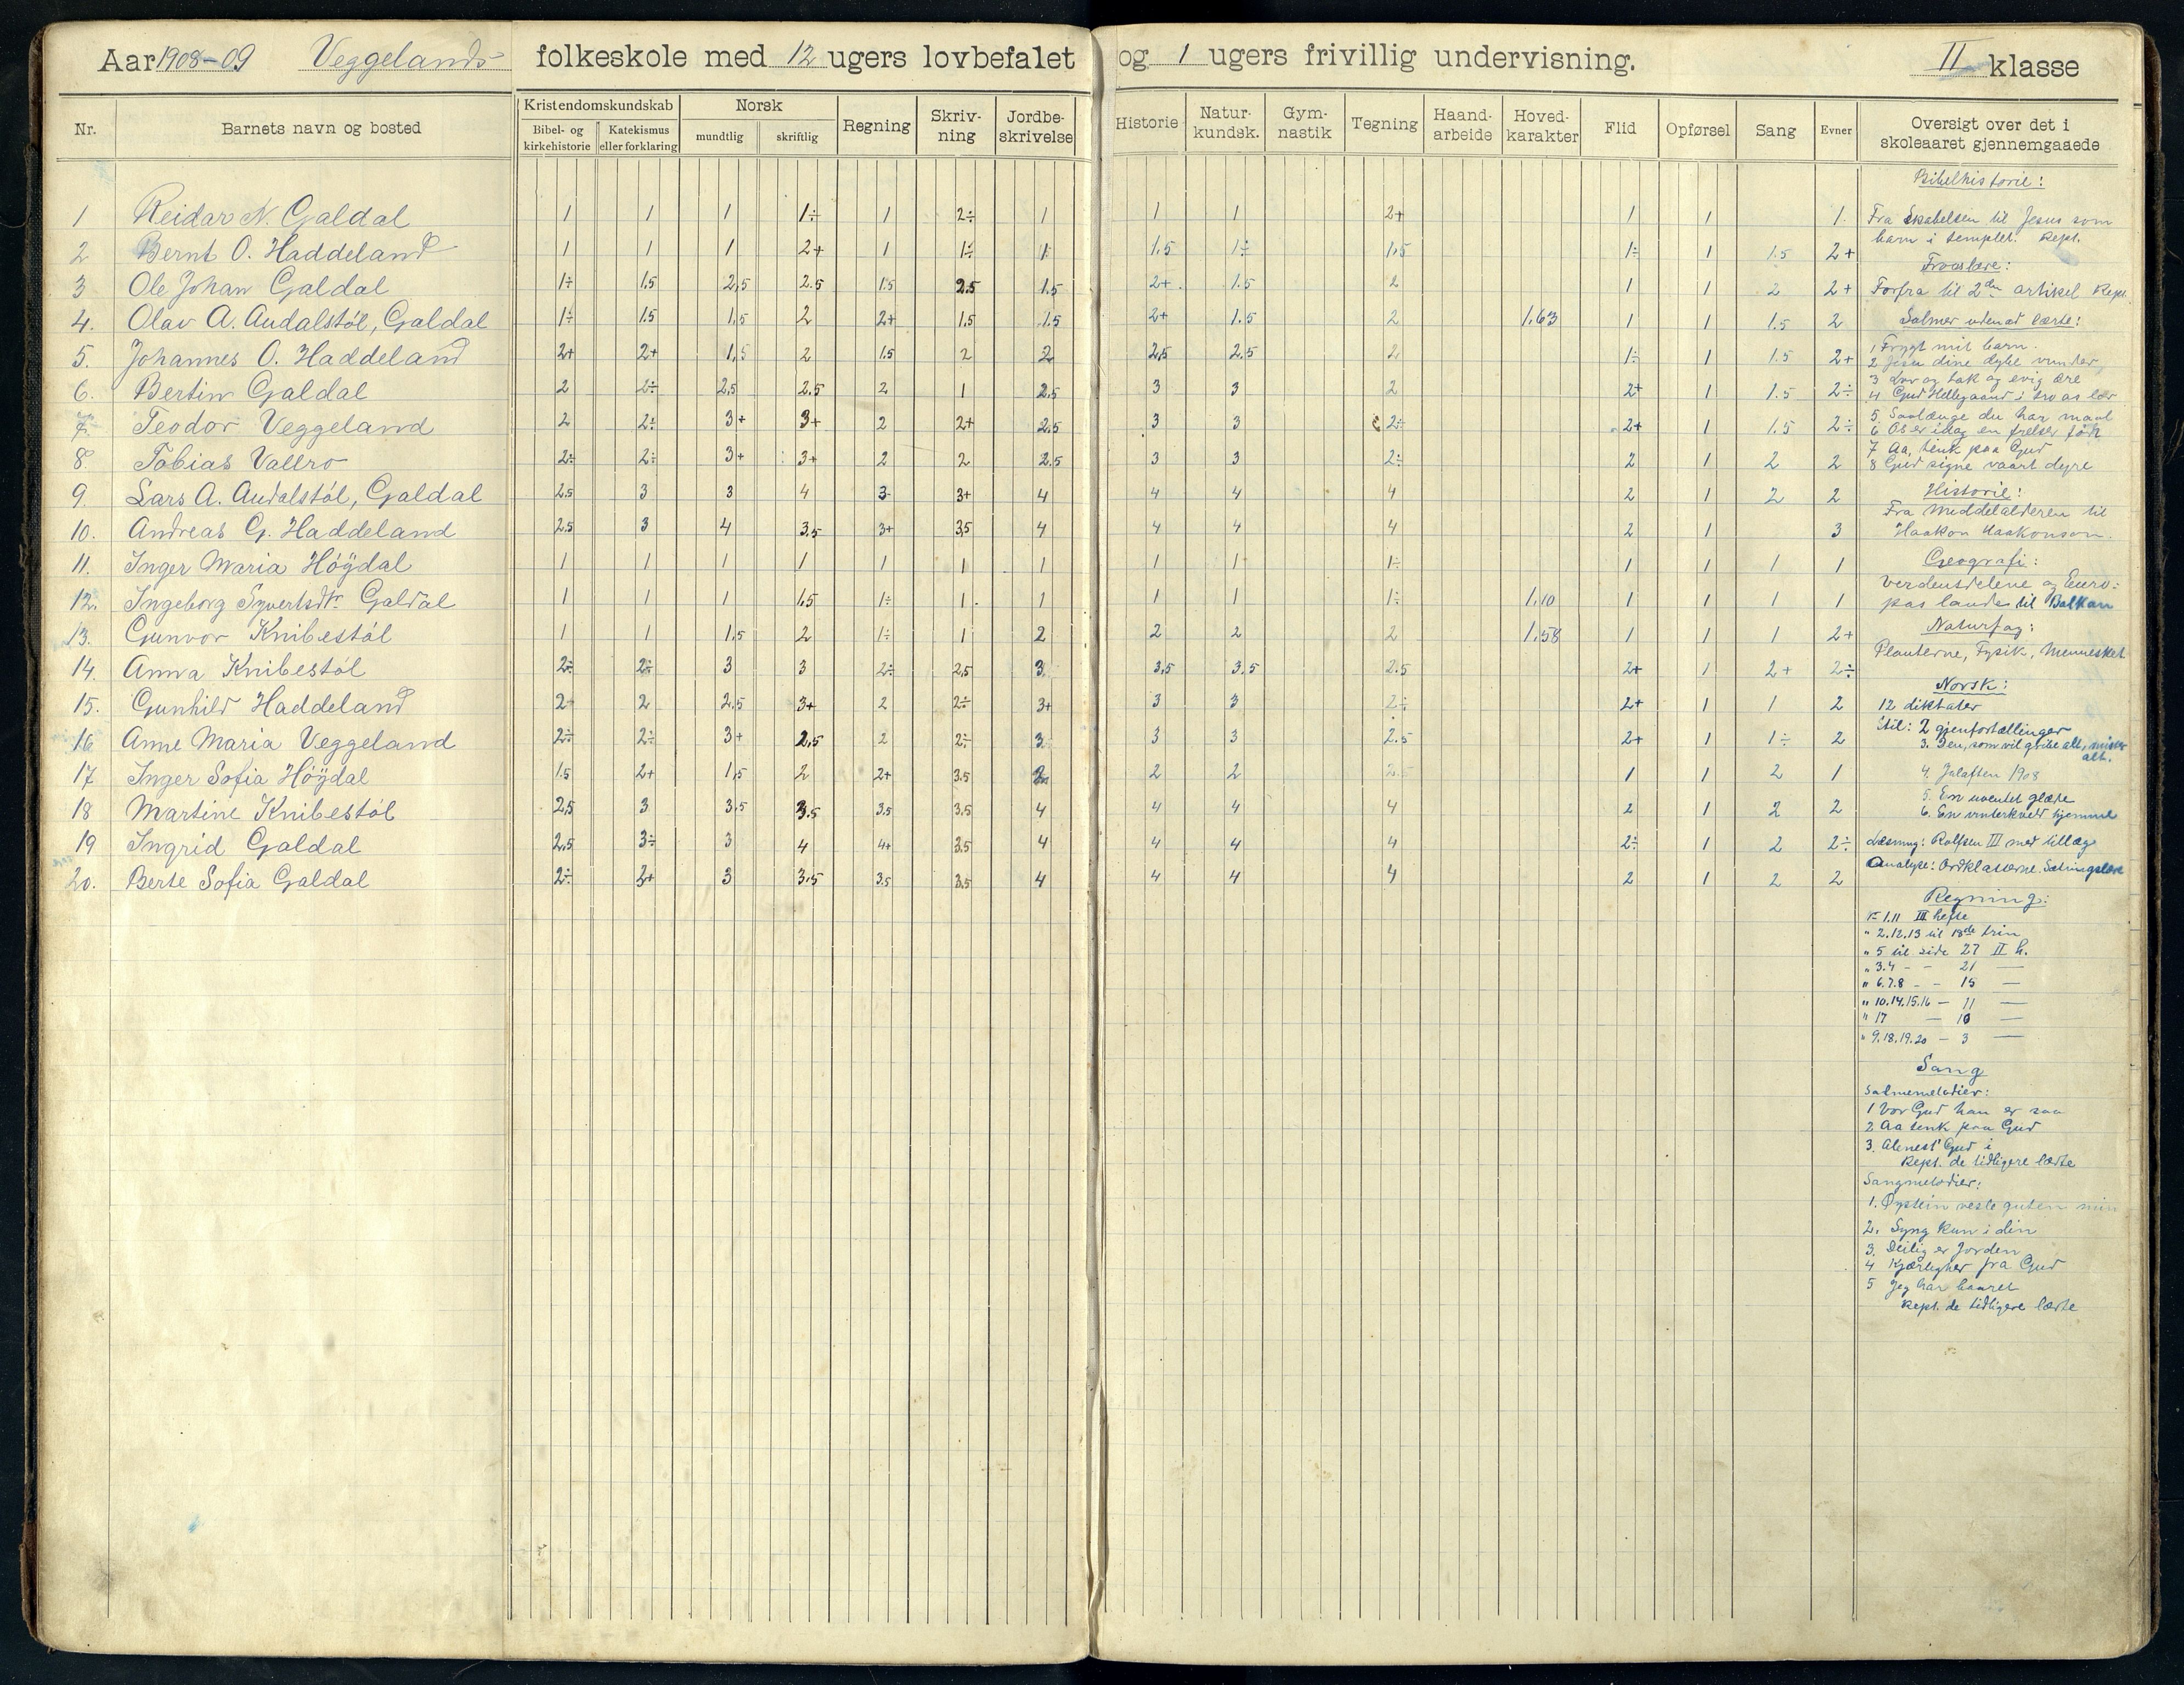 Aar 1908-09 Veggelands folkeskole med 12 ugers lovbefalet og 1 ugers frivillig undervisning. II klasse
Nr. Barnets navn og bosted Kristendomskundskab Bibel- og kirkehistorie Katekismus eller forklaring Norsk mundtlig skriftlig Regning Skriv-ning Jordbe-skrivelse Historie Natur-kundsk. Gym-nastik Tegning Haand-arbeide Hoved-karakter Flid Opførsel Sang Evner Oversigt over det i skoleaaret gjennemgaaede
1 Reidar N. Galdal 1 1 1 1÷ 1 2÷ 1 1 1 2+ 1 1 1.
2 Bernt O. Haddeland 1 1 1 2+ 1 1÷ 1 1,5 1÷ 1,5 1÷ 1 1.5 2+
3 Ole Johan Galdal 1÷ 1.5 2,5 2.5 1.5 2.5 1.5 2+ 1.5 2 1 1 2 2+
4. Olav A. Audalstöl, Galdal 1÷ 1.5 1,5 2 2+ 1.5 1.5 2+ 1.5 2 1,63 1 1 1.5 2
5. Johannes O. Haddeland 2+ 2+ 1,5 2 1.5 2 2 2,5 2.5 2 1÷ 1 1.5 2+
6. Bertin Galdal 2 2÷ 2,5 2.5 2 1 2.5 3 3 2 2+ 1 1.5 2÷
7. Teodor Veggeland 2 2÷ 3+ 3+ 2 2+ 2.5 3 3 2÷ 2+ 1 1.5 2÷
8. Tobias Vallro 2÷ 2÷ 3+ 3+ 2 2 2.5 3 3 2÷ 2 1 2 2
9. Lars A. Audalstöl, Galdal 2.5 3 3 4 3 3+ 4 4 4 4 2 1 2 2
10. Andreas G. Haddeland 2.5 3 4 3.5 3+ 3.5 4 4 4 4 2 1 3
11. Inger Maria Höydal 1 1 1 1 1 1 1 1 1 1÷ 1 1 1 1
12. Ingeborg Syvertsdtr. Galdal 1 1 1 1.5 1÷ 1 1 1 1 1÷ 1,10 1 1 1 1
13. Gunvor Knibestöl 1 1 1,5 2 1÷ 1 2 2 2 2 1,58 1 1 1 2+
14. Anna Knibestöl 2÷ 2÷ 3 3 2÷ 2,5 3 3,5 3.5 2.5 2+ 1 2+ 2÷
15. Gunhild Haddeland 2 2 2,5 3+ 2 2÷ 3+ 3 3 2÷ 2+ 1 1 2
16 Anne Maria Veggeland 2÷ 2÷ 3+ 2,5 2 2÷ 3 3 3 2.5 2+ 1 1÷ 2
17 Inger Sofia Höydal 1.5 2+ 1,5 2 2+ 3.5 2 2 2 2.5 1 1 2 1
18 Martine Knibestöl 2,5 3 3,5 3.5 3.5 3.5 4 4 4 4 2 1 2 2
19 Ingrid Galdal 2,5 3÷ 3 4 4+ 3.5 4 4 4 4 2÷ 1 2 2÷
20. Berte Sofia Galdal 2÷ 3+ 3 3,5 3.5 3.5 4 4 4 4 2 1 2 2
Bibelhistorie:
Fra Skabelsen til Jesus som
barn i templet. Rept.
Troslære:
Forfra til 2den artikel Rept.
Salmer udenad lærte:
1 Frygt mit barn.
2 Jesu dine dybe vunder
3 Lov og tak og evig ære
4 Gud Helligaand i tro os lær
5 Saalænge du har maal
6 Os er idag en frelser föd
7 Aa, tenk paa Gud
8 Gud signe vaart dyre
Historie:
Fra Middelalderen til
Haakon Haakonson.
Geografi:
Verdensdelene og Euro-
pas lande til Balkan
Naturfag:
Planterne, Fysik, Mennesket
Norsk:
12 diktater
Stil: 2 gjenfortællinger
3. Den, som vil gribe alt, mister
alt.
4. Julaften 1908
5. En uventet glæde
6. En vinterkveld hjemme
Læsning: Rolfsen III med tillæg
Analyse: Ordklasserne. Sætningslære
Regning:
Nr 1.11 III hefte
" 2.12.13 til 18de trin
" 5 til side 27 II h.
" 3.4 - - 21 —
" 6.7.8 - - 15 —
" 10.14.15.16 - 11 —
" 17 - 10 —
" 9.18.19.20 - 3 —
Sang
Salmemelodier:
1 Vor Gud han er saa
2 Aa tenk paa Gud
3. Alenest' Gud i
Rept. de tidligere lærte
Sangmelodier:
1. Øystein vesle guten min
2. Syng kun i din
3. Deilig er Jorden
4 Kjærlighet fra Gud
5 Jeg har baaret
Rept. de tidligere lærte